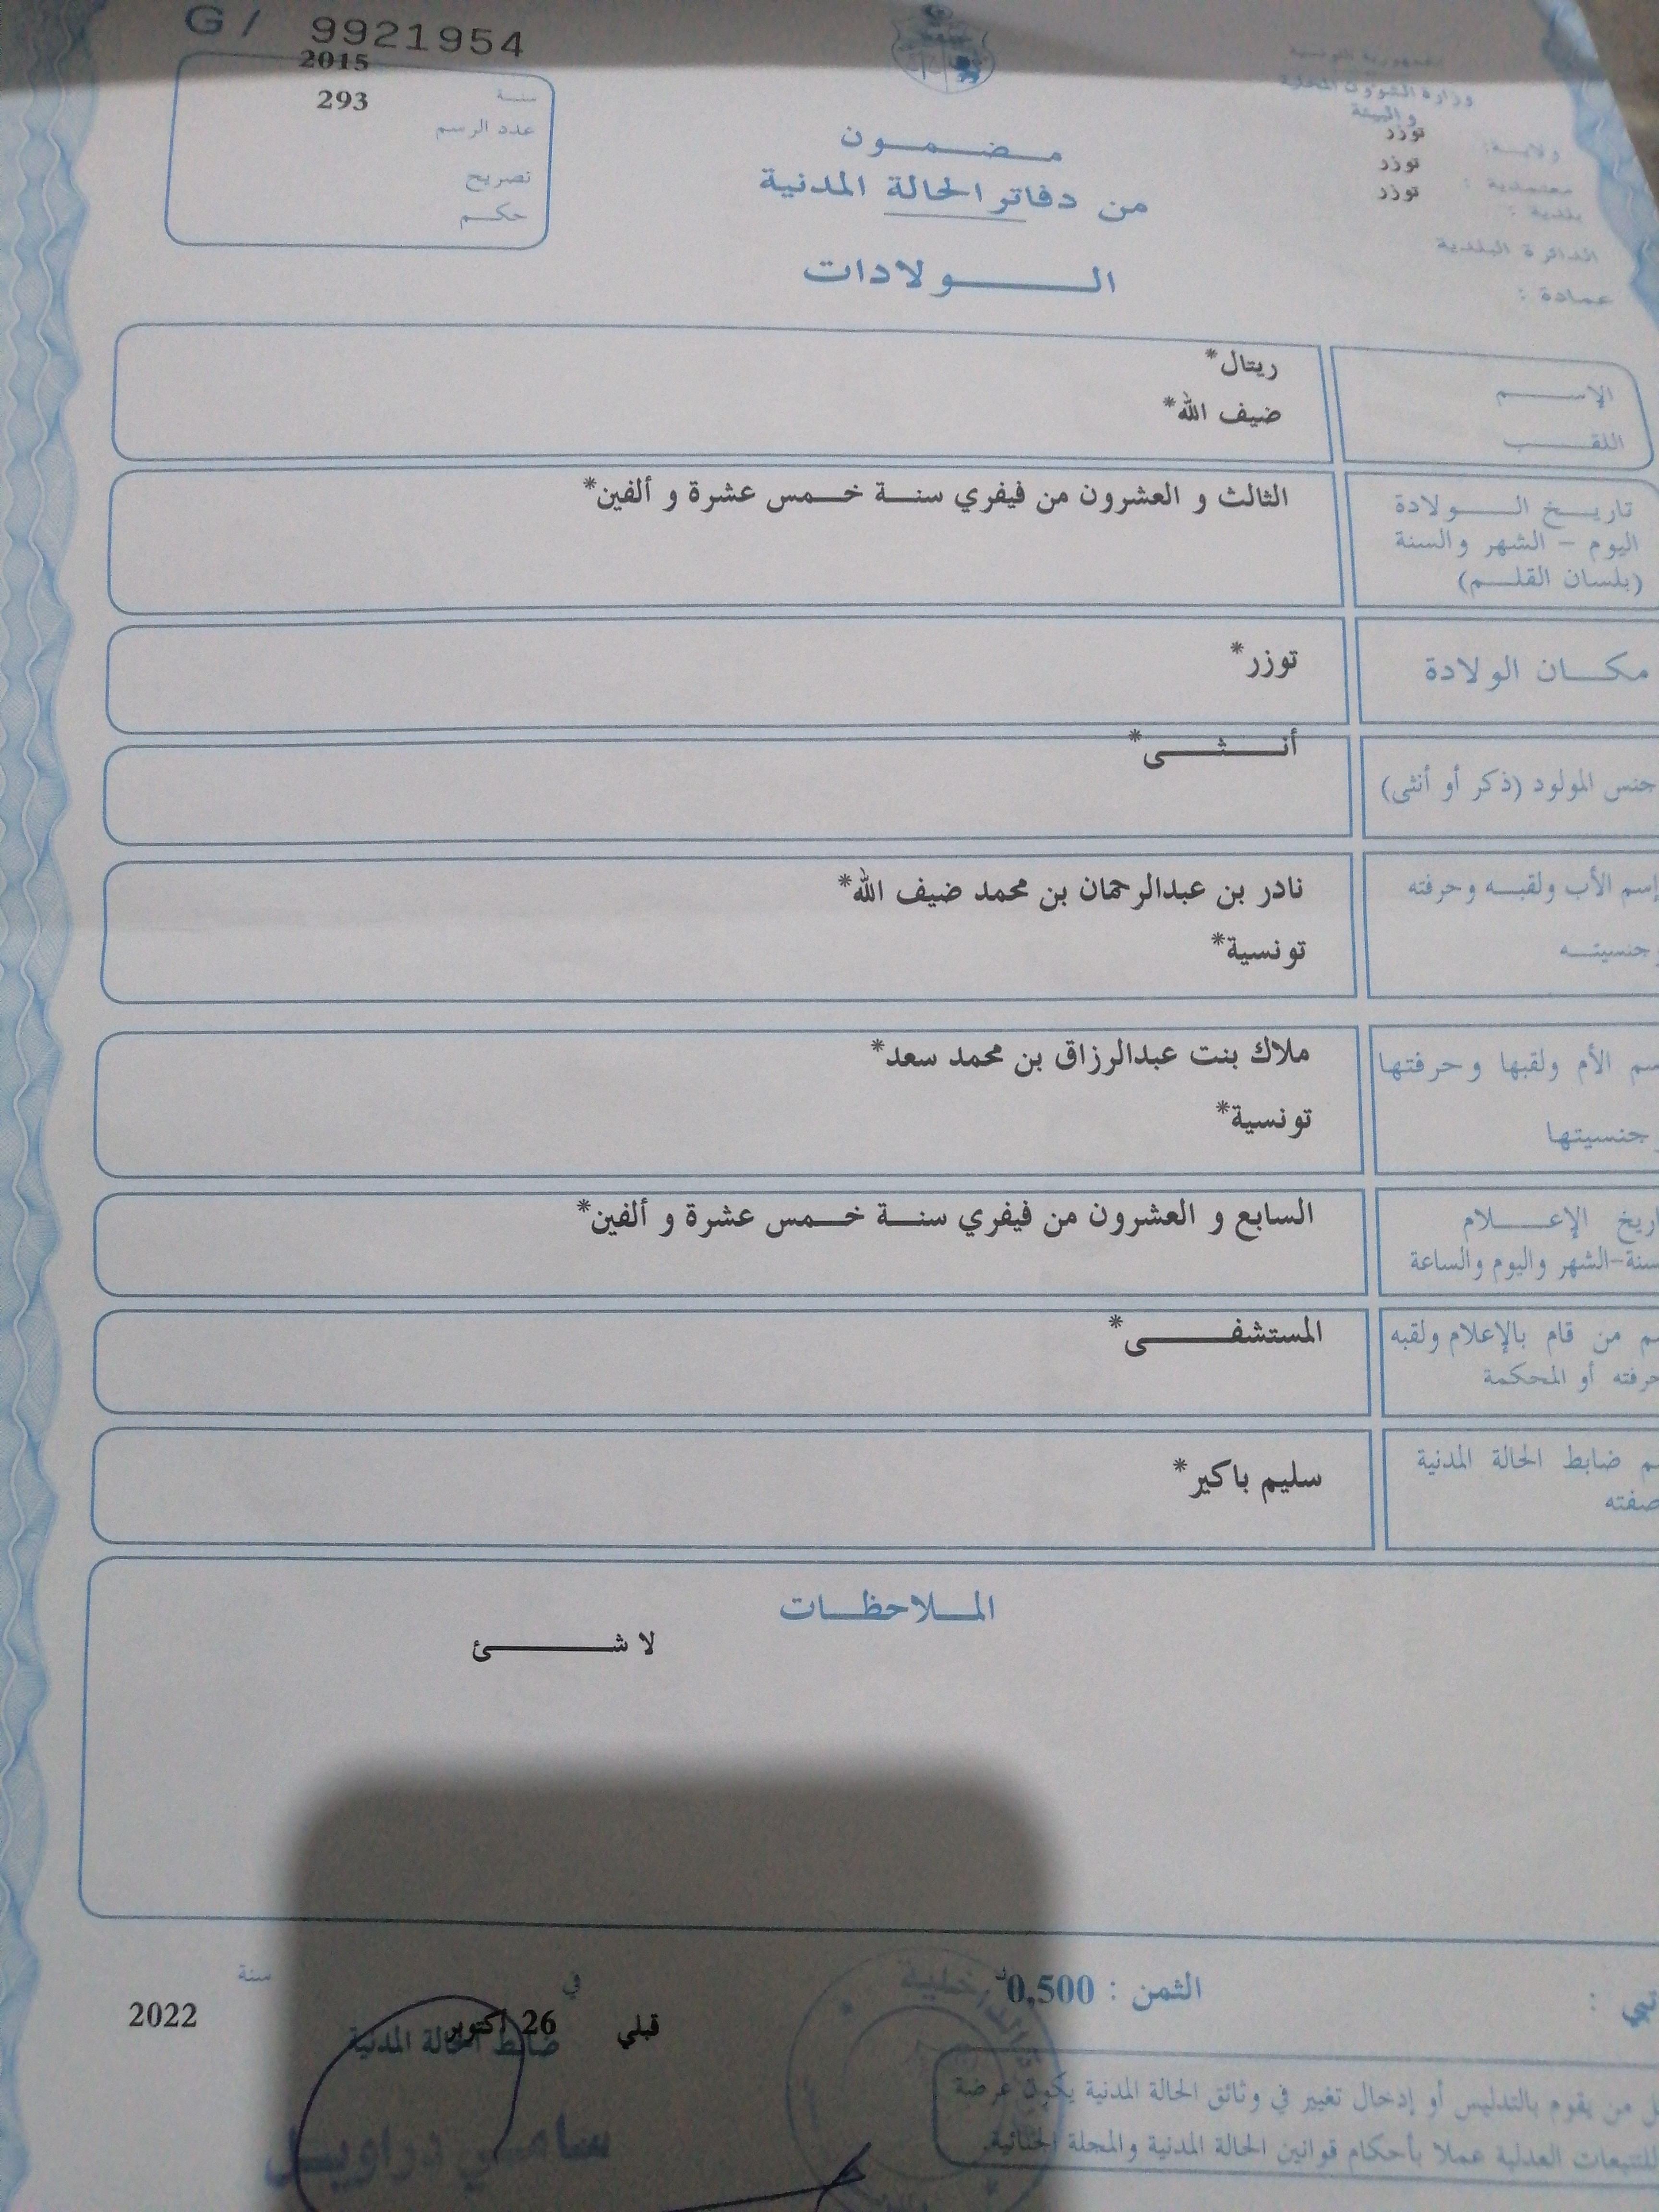 G / 9921954
الجمهورية التونسية
وزارة الشؤون المحلية
و البيئة
ولاية: توزر
معتمدية : توزر
بلدية : توزر
الدائرة البلدية
عمادة :
2015 سنة
293 عدد الرسم
تصريح
حكم
مضمون
من دفاتر الحالة المدنية
الولادات
الإسم ريتال*
اللقب ضيف الله*
تاريخ الولادة الثالث و العشرون من فيفري سنة خمس عشرة و ألفين*
اليوم - الشهر والسنة
(بلسان القلم)
مكان الولادة توزر*
جنس المولود (ذكر أو أنثى) أنثى*
إسم الأب ولقبه وحرفته نادر بن عبدالرحمان بن محمد ضيف الله*
وجنسيته تونسية*
سم الأم ولقبها وحرفتها ملاك بنت عبدالرزاق بن محمد سعد*
وجنسيتها تونسية*
اريخ الإعلام السابع و العشرون من فيفري سنة خمس عشرة و ألفين*
سنة-الشهر واليوم والساعة
م من قام بالإعلام ولقبه المستشفى*
حرفته أو المحكمة
م ضابط الحالة المدنية سليم باكير*
صفته
الملاحظات
لا شئ
الثمن : 0,500د
قبلي في 26 أكتوبر سنة 2022
ضابط الحالة المدنية
سامي دراويل
ل من يقوم بالتدليس أو إدخال تغيير في وثائق الحالة المدنية يكون عرضة
للتتبعات العدلية عملا بأحكام قوانين الحالة المدنية والمجلة الجنائية.